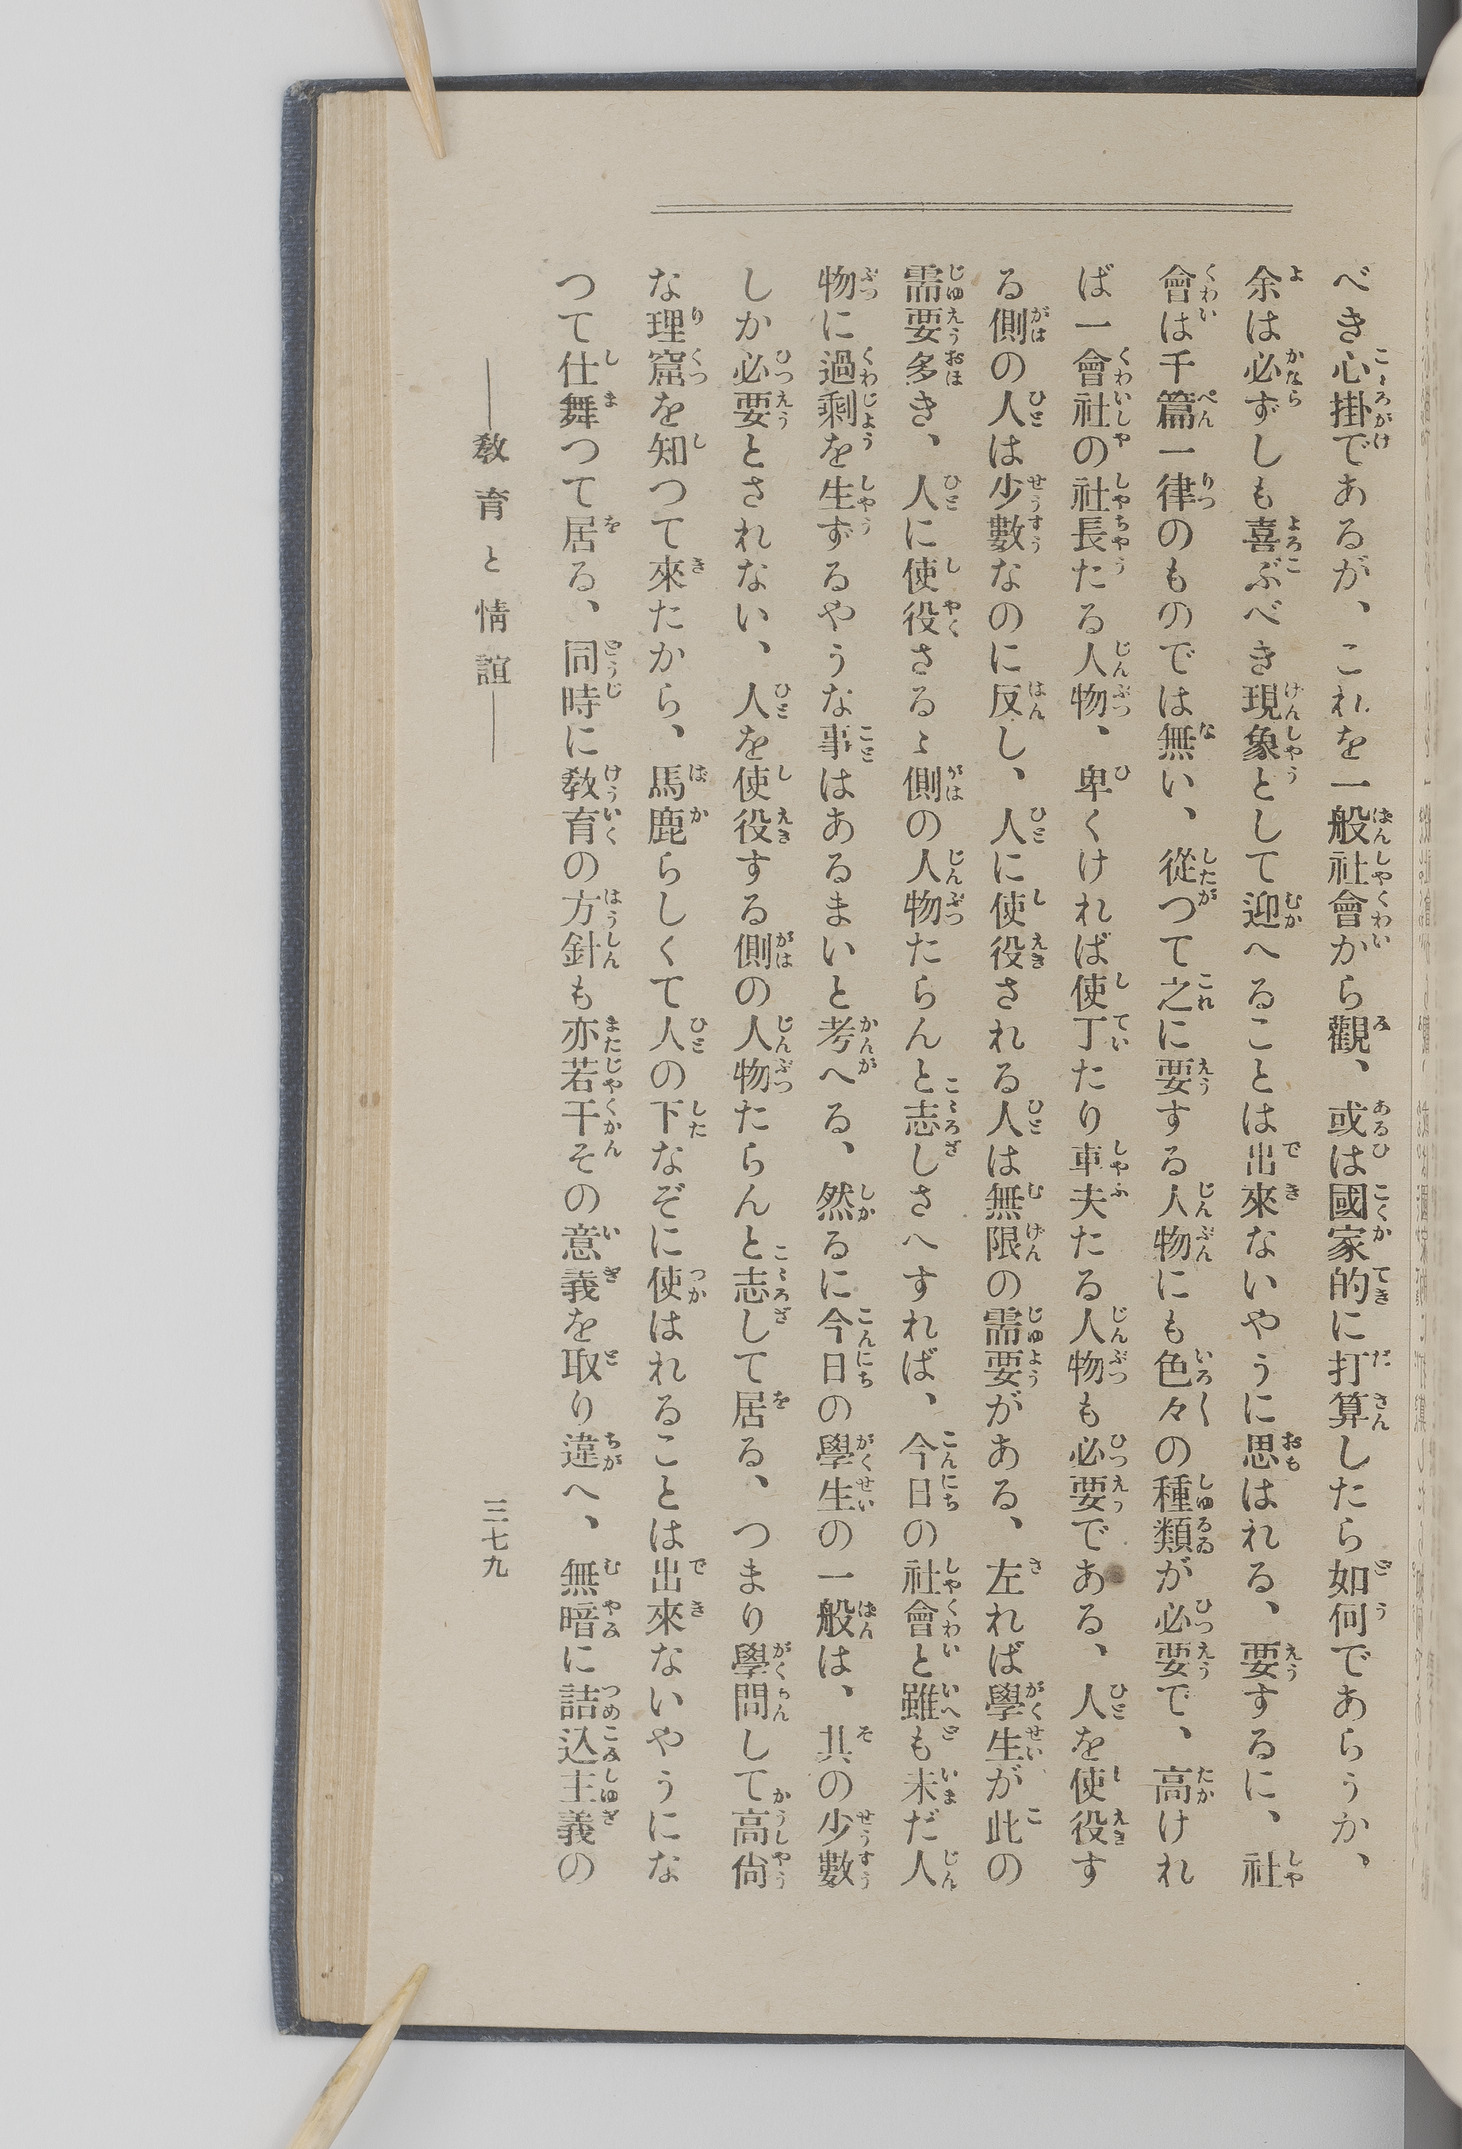 べき心掛であるが、これを一般社會から觀、或は國家的に打算したら如何であらうか、
余は必ずしも喜ぶべき現象として迎へることは出來ないやうに思はれる、要するに、社
會は千篇一律のものでは無い、從つて之に要する人物にも色々の種類が必要で、高けれ
ば一會社の社長たる人物、卑くければ使丁たり車夫たる人物も必要である、人を使役す
る側の人は少數なのに反し、人に使役される人は無限の需要がある、左れば學生が此の
需要多き、人に使役さるゝ側の人物たらんと志しさへすれば、今日の社會と雖も未だ人
物に過剩を生ずるやうな事はあるまいと考へる、然るに今日の學生の一般は、其の少數
しか必要とされない、人を使役する側の人物たらんと志して居る、つまり學問して高尙
な理窟を知つて來たから、馬鹿らしくて人の下なぞに使はれることは出來ないやうにな
つて仕舞つて居る、同時に敎育の方針も亦若干その意義を取り違へ、無暗に詰込主義の
――敎育と情誼――
三七九